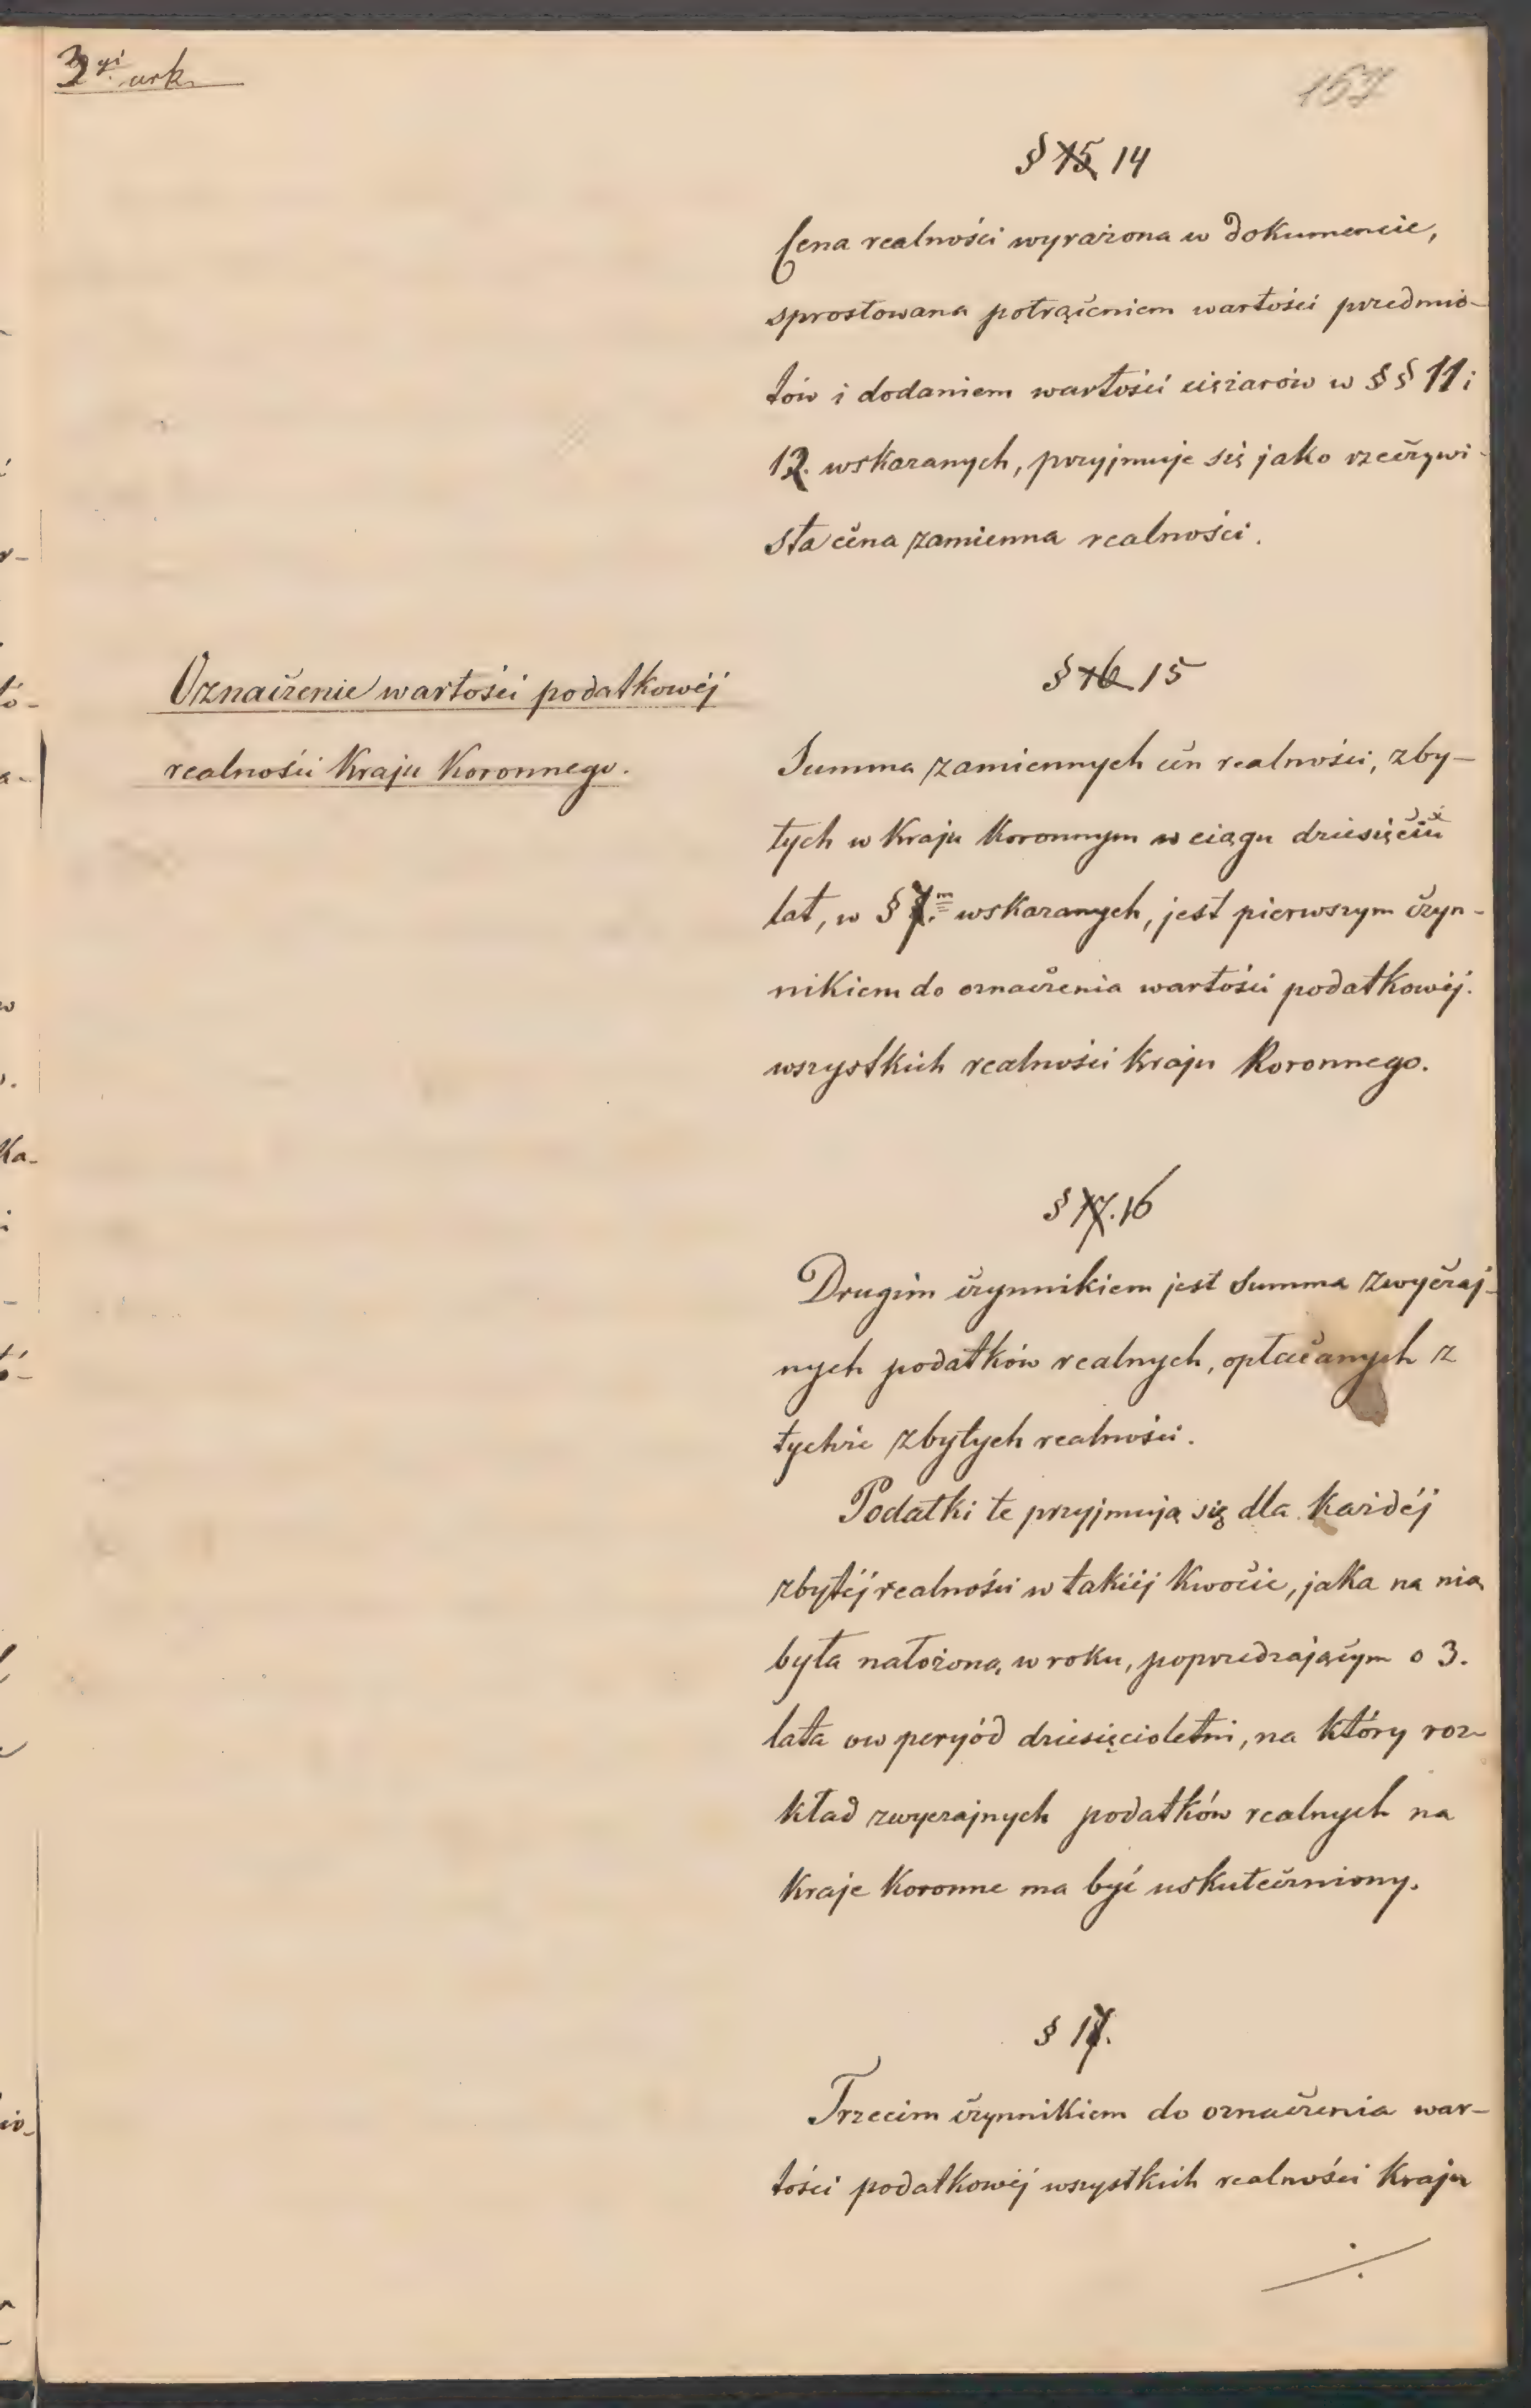 3ci ark.
167
§ 15 14
Cena realności wyrażona w dokumencie,
sprostowana potrąceniem wartości przedmio-
tów i dodaniem wartości ciężarów w §§ 11 i
12. wskazanych, przyjmuje się jako rzeczywi-
sta cena zamienna realności.
Oznaczenie wartości podatkowéj
realności Kraju Koronnego.
§ 16 15
Summa zamiennych cen realności, zby-
tych w Kraju Koronnym w ciągu dziesięciu
lat, w § 7.m wskazanych, jest pierwszym czyn-
nikiem do oznaczenia wartości podatkowéj
wszystkich realności Kraju Koronnego.
§ 17. 16
Drugim czynnikiem jest Summa zwyczaj-
nych podatków realnych, opłacanych z
tychże zbytych realności.
Podatki te przyjmują się dla każdéj
zbytéj realności w takiéj kwocie, jaka na nią
była nałożoną w roku, poprzedzającym o 3.
lata ów peryód dziesięcioletni, na który roz-
kład zwyczajnych podatków realnych na
Kraje Koronne ma być uskuteczniony.
§ 17.
Trzecim czynnikiem do oznaczenia war-
tości podatkowéj wszystkich realności Kraju
./.